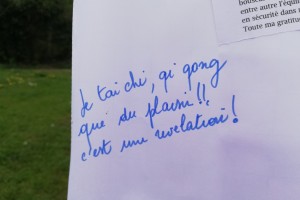 bouscu
entre autre l'équi
en sécurité dans
Toute ma gratitu
Je tai chi, qi gong
que du plaisir !!
c'est une revelation !